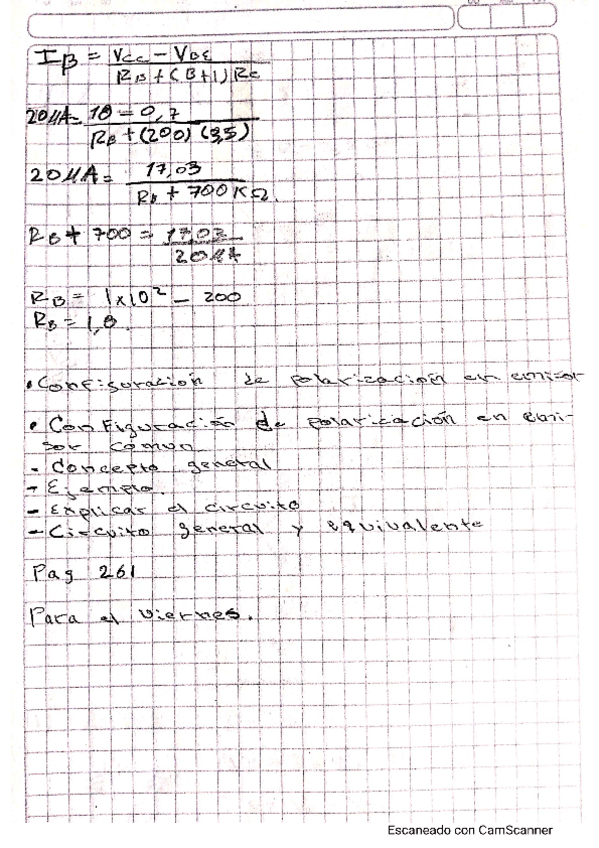 IB = VCC - VBE / RB + (B+1) RC
20MA = 18 - 0,7 / RB + (200) (3,5)
20MA = 17,03 / RB + 700 KΩ.
RB + 700 = 17,03 / 20MA
RB = 1x10² - 200
RB = 1,8.
• Configuración de polarización en emisor
• Configuración de polarización en emi-
sor comun
- Concepto general
- Ejemplo.
- Explicar el circuito
- Circuito general y equivalente
Pag 261
Para el viernes.
Escaneado con CamScanner